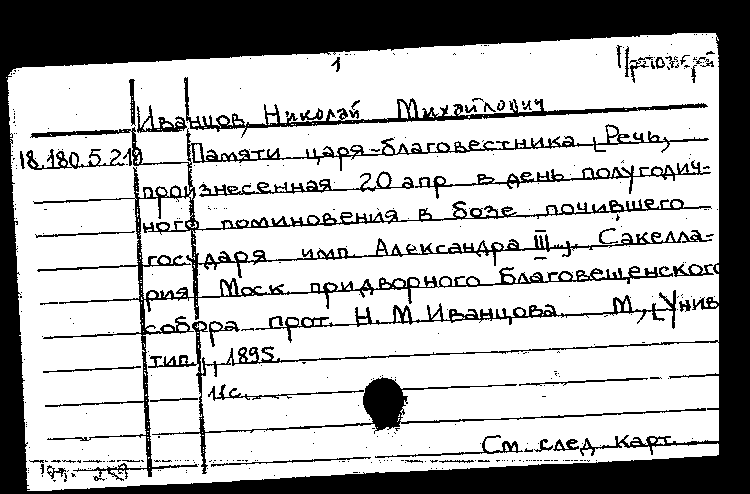 1
Протоиерей
Иванцов, Николай Михайлович
18.180.5.219 Памяти царя-благовестника. [Речь,
произнесенная 20 апр. в день полугодич-
ного поминовения в бозе почившего
государя имп. Александра III], Сакелла-
рия Моск. придворного Благовещенского
собора прот. Н. М. Иванцова. М., [Унив.
тип.], 1895.
11 с.
См. след. карт.